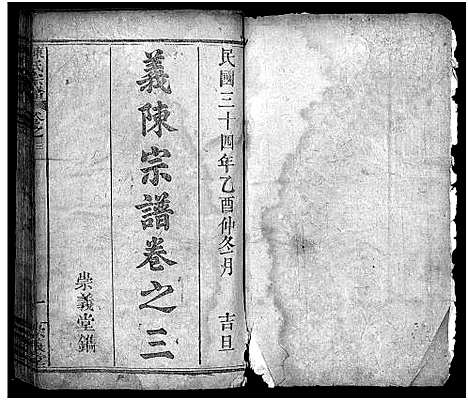 民國三十四年乙酉仲冬月 吉旦
義陳宗譜卷之三
崇義堂鐫